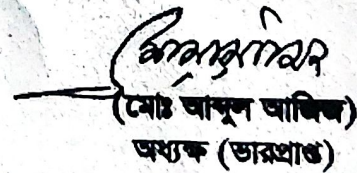 (মোঃ আব্দুল আজিজ)
অধ্যক্ষ (ভারপ্রাপ্ত)